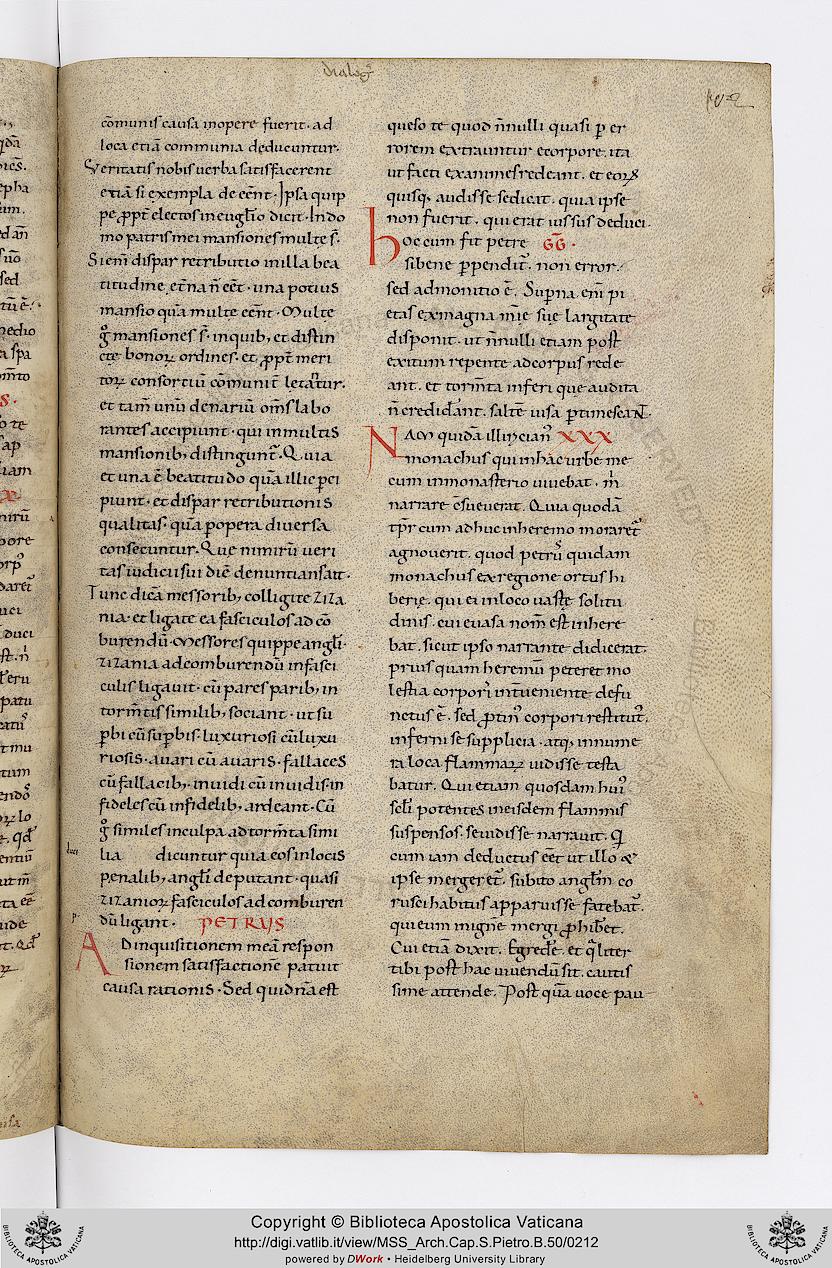 dialog̾
co̅munis causa inopere fuerit · ad
loca etia̅ communia deducuntur·
Veritatis nobis uerba satisfacerent
etia̅ si exempla dee̅nt · Ipsa quip
pe ꝓpt̅ electos in eugl̅io dicit · In do
mo patris mei mansiones multe s̅·
Si eni̅ dispar retributio in illa bea
titudine et̅na n̅ ee̅t · una potius
mansio qua̅ multe ee̅nt · Multe
g̊ mansiones s̅· inquib; et distin
cte bonoꝝ ordines · et ꝓpt̅ meri
toꝝ consortiu̅ co̅munit̅ leta̅tur·
et tam̅ unu̅ denariu̅ om̅s labo
rantes accipiunt · qui in multis
mansionib; distingunt̅· Quia
et una e̅ beatitudo qua̅ illic p̱ci
piunt · et dispar retributionis
qualitas · qua̅ p̱ opera diuersa
consecuntur · Que nimiru̅ ueri
tas iudicii sui die̅ denuntians ait·
Tunc dica̅ messorib; colligite ziza
nia · et ligate ea fasciculos ad co̅
burendu̅ · Messores quippe angl̅i·
zizania ad comburendu̅ in fasci
culis ligauit · cu̅ pares parib; in
torm̅tis similib; sociant · ut su
p̱bi cu̅ sup̱bis · luxuriosi cu̅ luxu
riosis · auari cu̅ auaris · fallaces
cu̅ fallacib; inuidi cu̅ inuidis · in
fideles cu̅ infidelib; ardeant · Cu̅
g̊ similes in culpa ad torm̅ta simi
lia dicuntur quia eos in locis
penalib; angl̅i deputant · quasi
zizanioꝝ fasciculos ad comburen
du̅ ligant · PETRUS
Ad inquisitionem mea̅ respon
sionem satisfactione̅ patuit
causa rationis · Sed quid na̅ est
queso te quod n̅nulli quasi p̱ er
rorem extrauntur e corpore · ita
ut facti exanimes redeant · et eoꝝ
quisq; audisse se dicat · quia ipse
non fuerit · qui erat iussus deduci·
hoc cum fit petre GG̅ ·
si bene p̱pendit̅ · non error ·
sed admonitio e̅ · Sup̱na eni̅ pi
etas ex magna mi̅e sue largitate
disponit · ut n̅nulli etiam post
exitum repente ad corpus rede
ant · et torm̅ta inferi que audita
n̅ credidera̅nt · salte̅ uisa p̱timescaNT·
NAm quida̅ illirician̾ XXX
monachus qui in hac urbe me
cum in monasterio uiuebat · m̅
narrare c̅sueuerat · Quia quoda̅
tp̅r cum adhuc in heremo moraret̾
agnouerit · quod petru̅s quidam
monachus ex regione ortus hi
berie · qui ei in loco uaste solitu
dinis · cui euasa nom̅ est inhere
bat · sicut ipso narrante didicerat·
prius quam heremu̅ peteret mo
lestia corpori int̅ueniente defu
nctus e̅ · sed ꝓtin̾ corpori restitut̾·
inferni se supplicia · atq; innume
ra loca flammaꝝ uidisse testa
batur · Qui etiam quosdam hui̾
scl̅i potentes in eisdem flammis
suspensos · se uidisse narrauit · Q̅
cum iam deductus ee̅t ut illo &
ipse mergeret̅· subito angl̅m co
rusci habitus apparuisse fatebat̅·
qui eum in igne̅ mergi ꝓhibe̅t·
Cui etia̅ dixit · Egrede̅· et q̅liter
tibi post hac uiuendu̅ sit · cautis
sime attende · Post qua̅ uoce pau
Copyright © Biblioteca Apostolica Vaticana
http://digi.vatlib.it/view/MSS_Arch.Cap.S.Pietro.B.50/0212
powered by DWork • Heidelberg University Library
BIBLIOTECA APOSTOLICA VATICANA
BIBLIOTECA APOSTOLICA VATICANA